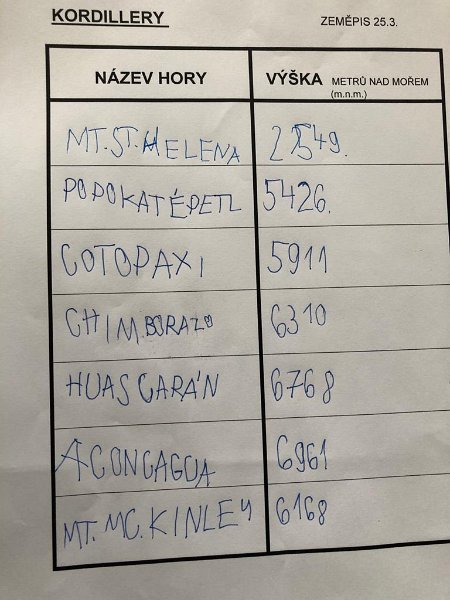 KORDILLERY ZEMĚPIS 25.3.
NÁZEV HORY VÝŠKA METRŮ NAD MOŘEM
(m.n.m.)
MT. ST. HELENA 2549.
POPOKATÉPETL 5426.
COTOPAXI 5911
CHIMBORAZO 6310
HUASCARÁN 6768
ACONCAGUA 6961
MT. MC. KINLEY 6168